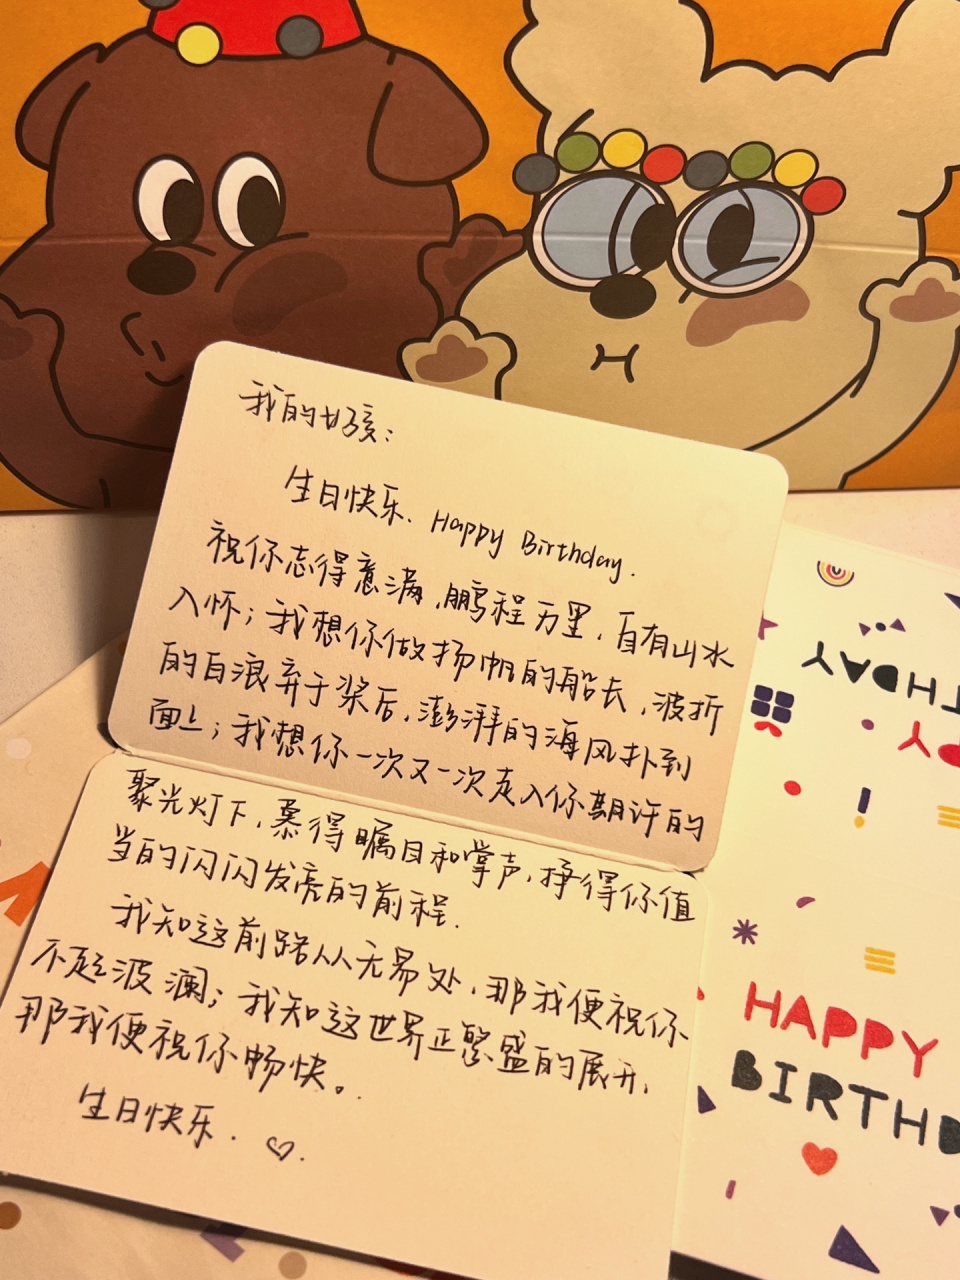 我的好孩:
生日快乐. Happy Birthday.
祝你志得意满,鹏程万里,自有山水
入怀;我想你做扬帆的船长,波折
的白浪弃于桨后,澎湃的海风扑到
面上;我想你一次又一次走入你期许的
聚光灯下,慕得瞩目和掌声,挣得你值
当的闪闪发亮的前程.
我知这前路从无易处,那我便祝你
不起波澜;我知这世界正繁盛的展开,
那我便祝你畅快。
生日快乐. ♡.
HAPPY
BIRTHD
THDAY
PY